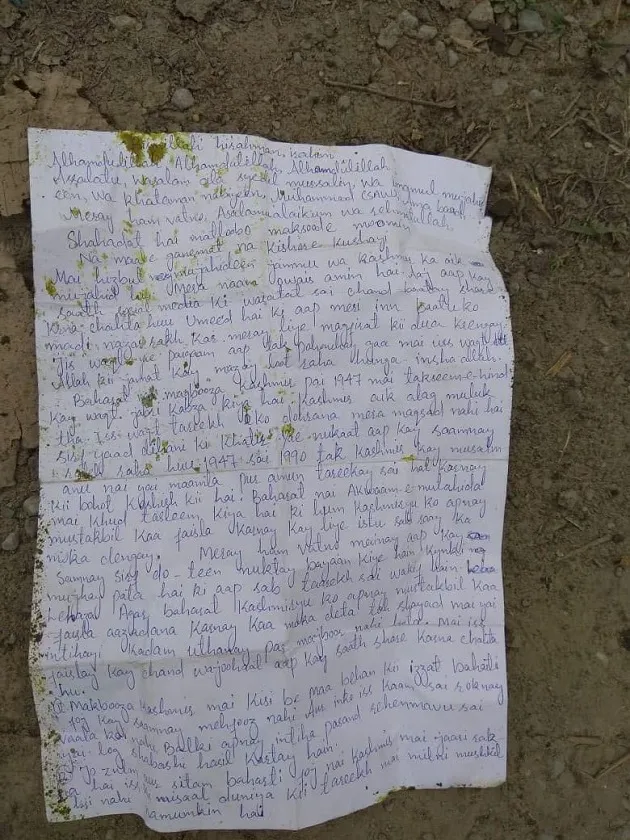 llahi hirahman, rahim
Alhamdulillah Alhamdulillah, Alhamdulillah
Assalatu, wasalam ala syedil mursaleen wa
een, wa khataman nabiyeen, Muhammad (SAW) Amma baad
Mesay ham vatno, Asalamualaikum wa
Shahadat hai matloobo maksoode moomin
Na maale ganemat na Kishore Kushayi
Mai hizbul mujahideen jammu wa kashmir ka aik
mujahid hu. Mera naam Owais amin hai. Aaj aap kay
saath social media ki sai chand baatay share
karna chahta huu Umeed hai ki aap mesi inn baatu ko
madi nazar rakh kar mesay liye magfirat kii dua krengay.
Jis waqt ye paigam aap tak pahunchay gaa mai uss waqt
Allah kii janat kay mazay loot raha hunga. insha allah.
Bahasat makbooza kashmir pai 1947 mai takseem-e-hind
kay waqt jabri kabza kiya hai. Kashmir aik alag muluk
tha. Iss waqt tareekh ko dohrana mera maqsad nahi hai
sirf yaad dilani ki khatir yae nukaat aap kay saamnay
rakh raha huu 1947 sai 1990 tak kashmir kay musalm
anu nai yai maamla pur amin tareekay sai hal karnay
kii bohot koshish kii hai. Bahasat nai Akwaam-e-mutahida
mai khud tasleem kiya hai ki hum kashmiryu ko apnay
mustakbil kaa faisla karnay kay liye istu sab saay ka
moka dengay. Mesay ham vatno mainay aap kay
samnay sirf do-teen nuktay bayaan kiye hain kyunki
mujhay pata hai ki aap sab tareekh sai wakif hain
Lehaza Agar bahasat kashmiryu ko apnay mustakbil kaa
faisla aazadana karnay kaa moka deta toh shayad mai yai
intihayi kadam uthanay par majboor nahi hota. Mai iss
faislay kay chand wajoohaat aap kay saath share karna chahta
hu.
Makbooza kashmir mai kisi be maa behan kii izzat bahasti
fog kay saamnay mehfooz nahi aur inko iss kaam sai roknay
waala koi nahi Balki apnay intiha pasand sehenmavu sai
log shabashi hasil kartay hain.
jo zulm aur sitam bahasti fog nai kashmir mai jaari rak
ha hai iss ki misaal duniya kii tareekh mai milni mushkil
hi nahi namumkin hai